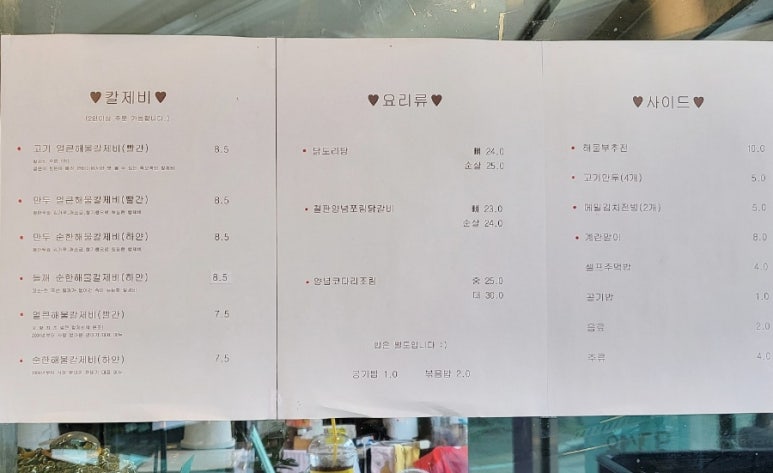 ♥칼제비♥
(2인이상 주문 가능합니다.)
고기 얼큰해물칼제비(빨간) 8.5
만두 얼큰해물칼제비(빨간) 8.5
만두 순한해물칼제비(하얀) 8.5
들깨 순한해물칼제비(하얀) 8.5
얼큰해물칼제비(빨간) 7.5
순한해물칼제비(하얀) 7.5
♥요리류♥
닭도리탕 뼈 24.0
순살 25.0
철판양념쪼림닭갈비 뼈 23.0
순살 24.0
양념코다리조림 중 25.0
대 30.0
밥은 별도입니다 :)
공기밥 1.0 볶음밥 2.0
♥사이드♥
해물부추전 10.0
고기만두(4개) 5.0
메밀김치전병(2개) 5.0
계란말이 8.0
셀프주먹밥 4.0
공기밥 1.0
음료 2.0
주류 4.0